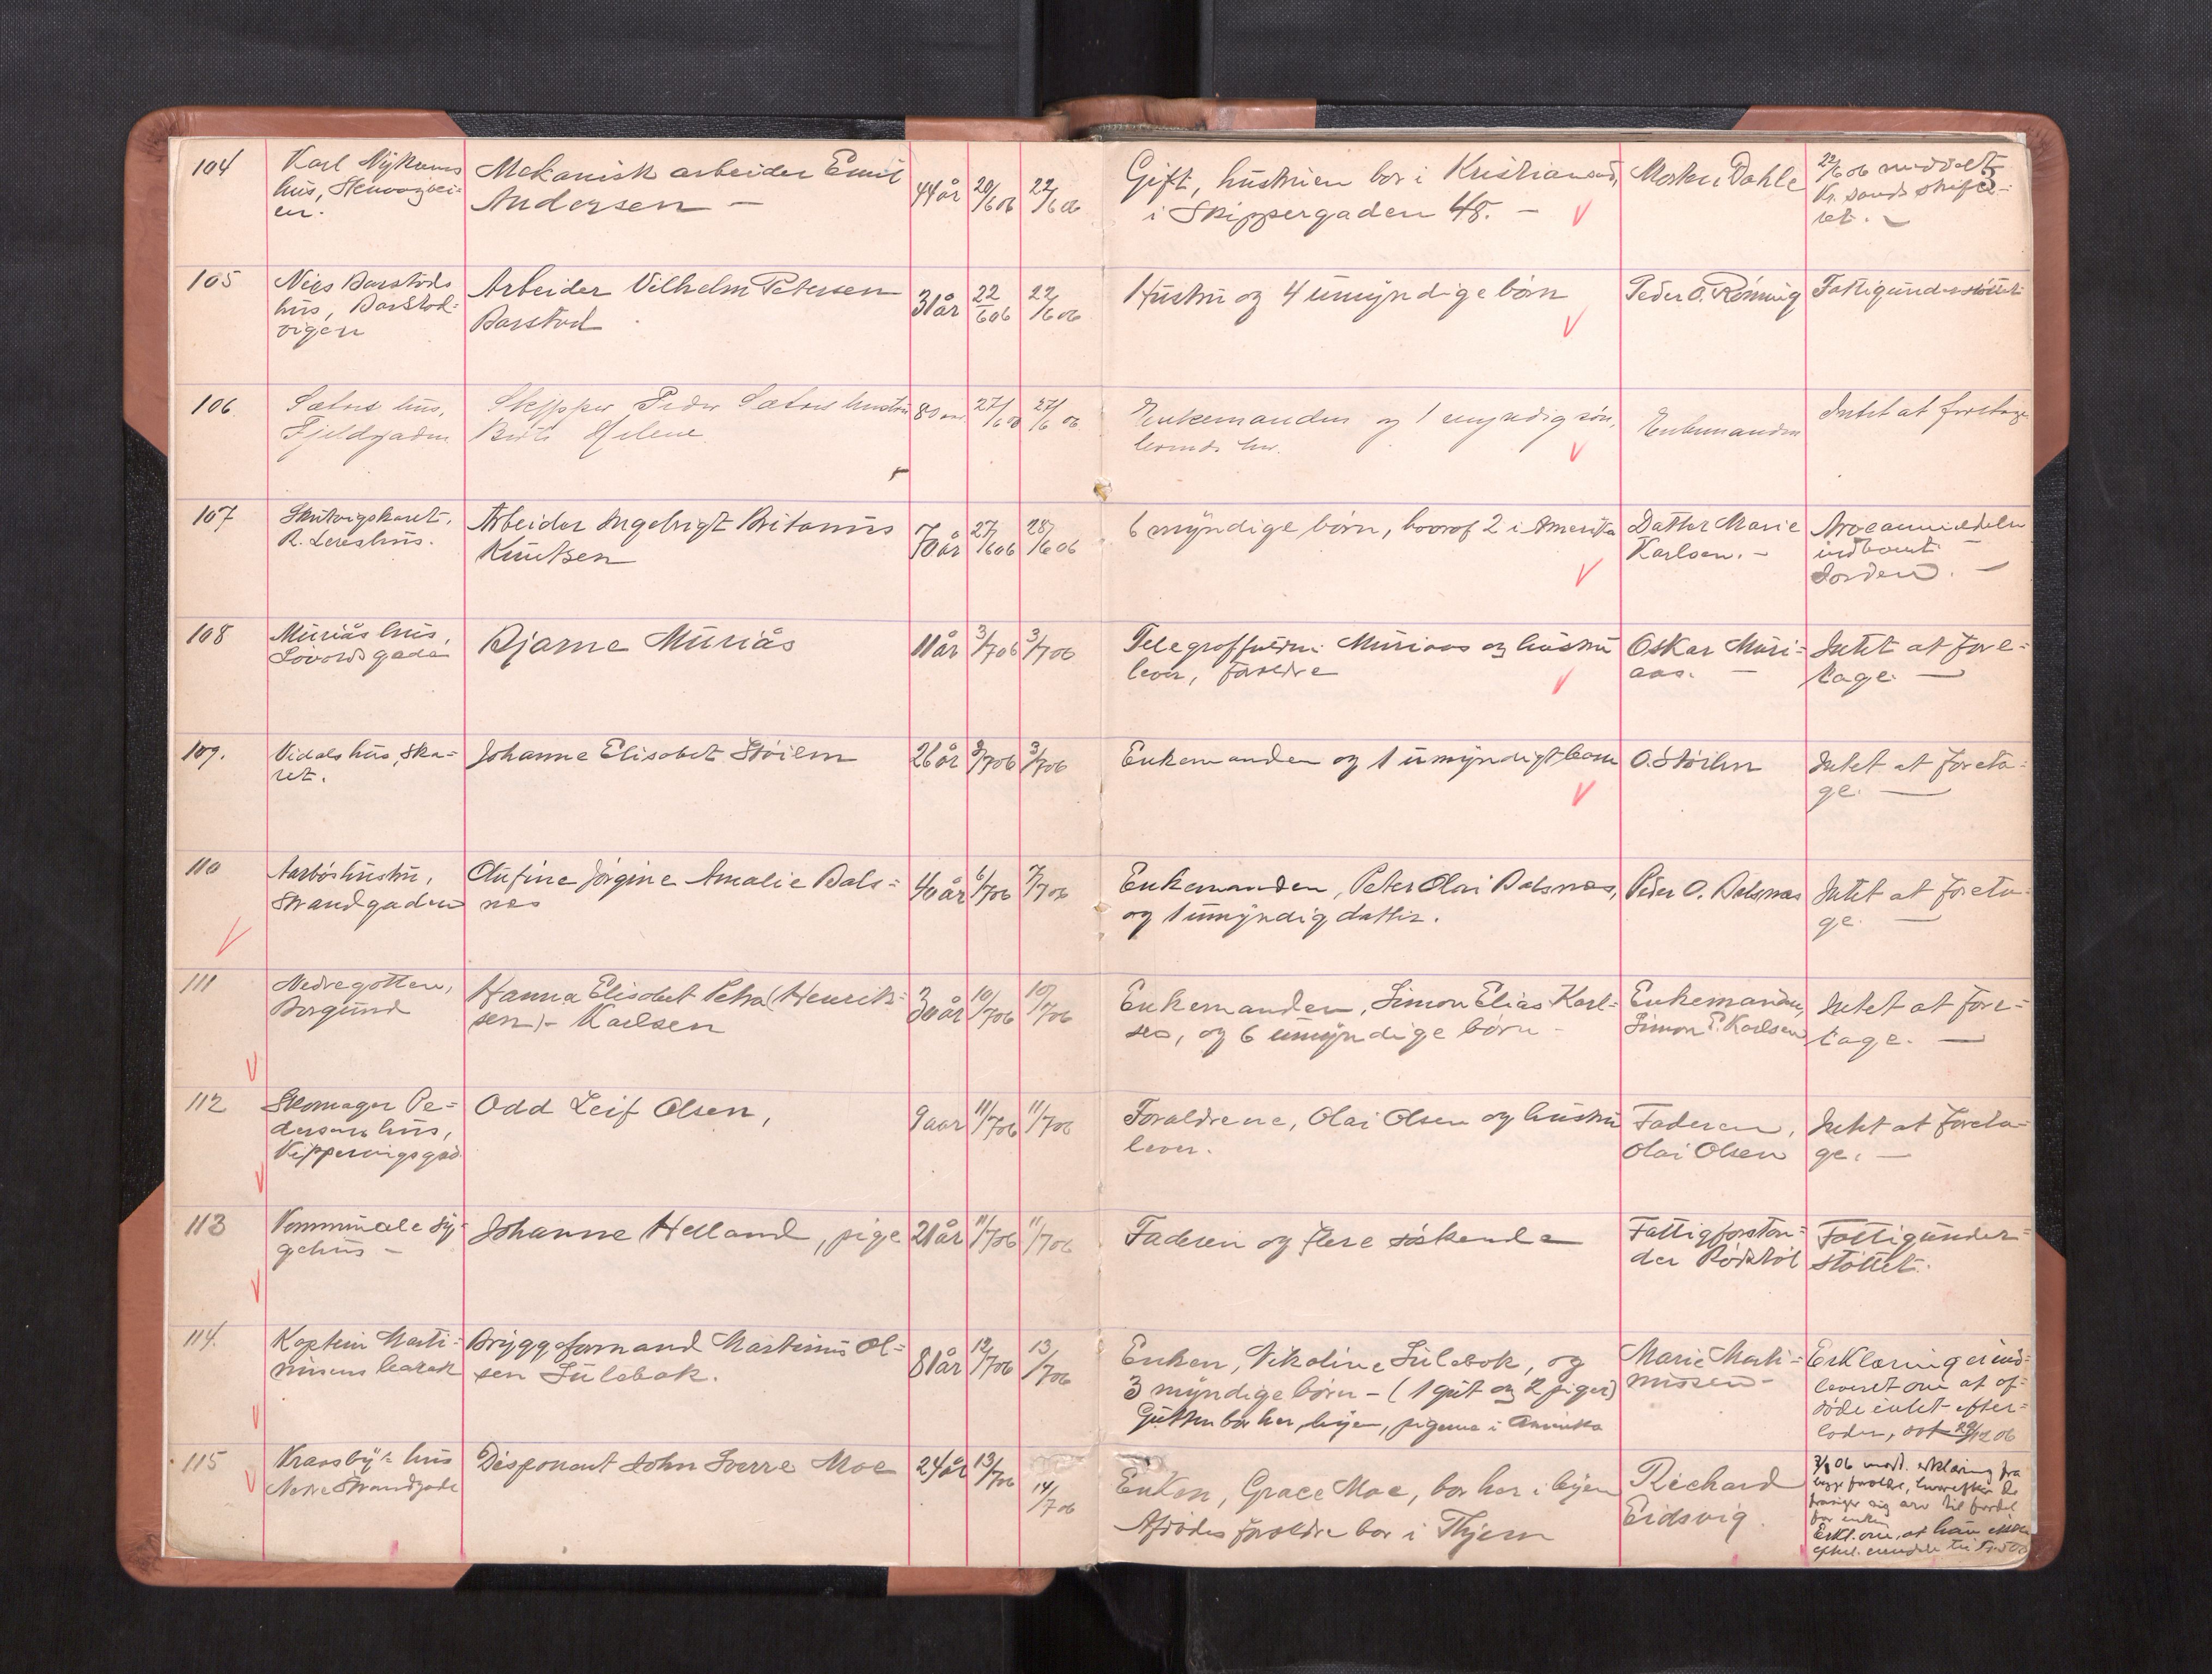 104
Karl Nykaas
hus, Skarvøyvei-
en.
Mekanisk arbeider Emil
Andersen —
44 år
20/6 06
22/6 06
Gift, hustruen bor i Kristiansund,
i Skippergaden 48. —
Morten Dahle
22/6 06 meddelt
Kr.sunds skifte-
ret. —
105
Nils Barstads
hus, Barstad-
vigen
Arbeider Vilhelm Petersen
Barstad
31 år
22/6 06
22/6 06
Hustru og 4 umyndige børn
Peder O. Rønning
Fattigunderstøttet
106
Sætres hus,
Fjeldgaden
Skipper Peder Sætres hustru
Helene
80 aar
27/6 06
27/6 06
Enkemanden og 1 myndig søn,
boende her.
Enkemanden
Intet at foretage
107
Skutvigskaret,
R. Lereshus.
Arbeider Ingebrigt Britanus
Knutsen
70 år
27/6 06
28/6 06
6 myndige børn, hvoraf 2 i Amerika
Datter Marie
Karlsen. —
indkomt
108
Muriås hus,
Løvoldsgade
Bjarne Muriås
11 år
3/7 06
3/7 06
Telegraffuldm. Muriaas og hustru
lever, forældre
Oskar Muri-
aas. —
Intet at fore-
tage. —
109.
Vidals hus, Ska-
ret.
Johanne Elisabet Støilen
26 år
3/7 06
3/7 06
Enkemanden og 1 umyndigt barn
O. Støilen
Intet at foreta-
ge. —
110
Aarbøshustru,
Strandgaden
Olufine Jørgine Amalie Dals-
nes
40 år
6/7 06
7/7 06
Enkemanden, Peter Olai Dalsnæs,
og 1 umyndig datter.
Peder O. Dalsnæs
Intet at foreta-
ge. —
111
Nedregotten,
Borgund
Hanna Elisabet Petra (Henrik-
sen) - Karlsen
30 år
10/7 06
10/7 06
Enkemanden, Simon Elias Karl-
sen, og 6 umyndige børn —
Enkemanden,
Simon E. Karlsen
Intet at fore-
tage. —
112
Skomager Pe-
dersens hus,
Kipperviksgad
Odd Leif Olsen,
9 aar
11/7 06
11/7 06
Forældrene, Olai Olsen og hustru
lever.
Faderen,
Olai Olsen
Intet at foreta-
ge. —
113
Kommunale sy-
gehus —
Johanne Helland, pige
21 år
11/7 06
11/7 06
Faderen og flere søskende
Fattigforstan-
der Rødstøl
Fattigunder-
støttet.
114.
Kaptein Marti-
nusens barak
Bryggeformand Martinus Ol-
sen Sulebak.
81 år
12/7 06
13/7 06
Enken, Nikoline Sulebak, og
3 myndige børn — (1 gut og 2 piger)
Gutten bor her i byen, pigerne i Amerika
Marie Marti-
nussen —
Erklæring er ind-
leveret om at af-
døde intet efter-
lader, 06
115
hus
Nedre Strandgade
Disponent John Sverre Moe
24 år
13/7 06
14/7 06
Enken, Grace Moe, bor her i byen
Afdødes forældre bor i Thjem
Richard
Eidsvig
7/8 06 modt. erklæring fra
frasiger sig arv til fordel
for enken
Erkl. om, at han